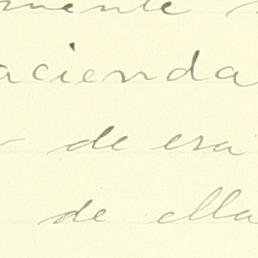 mente
acienda
de esa
de ella